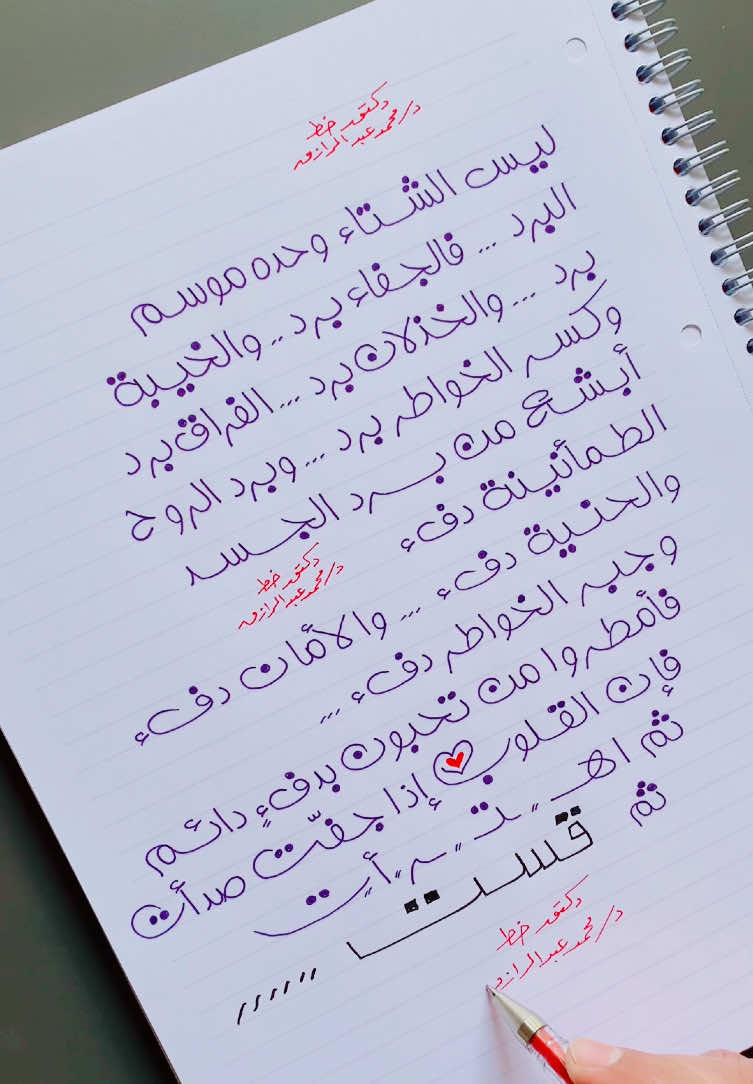 دكتور خط
د/محمد عبدالرازق
ليس الشتاء وحده موسم
البرد ... فالجفاء برد .. والخيبة
برد ... والخذلان برد ... الفراق برد
وكسر الخواطر برد ... وبرد الروح
أبشع من برد الجسد
الطمأنينة دفء
دكتور خط
د/محمد عبدالرازق
والحنية دفء ... والأمان دفء
وجبر الخواطر دفء ...
فأمطروا من تحبون بدفءٍ دائم
فإن القلوب إذا جفّت صدأت
ثم اهـ ،، تـ ،، ر ،، أ ،، ت
ثم قست ،،،،،،
دكتور خط
د/محمد عبدالرازق